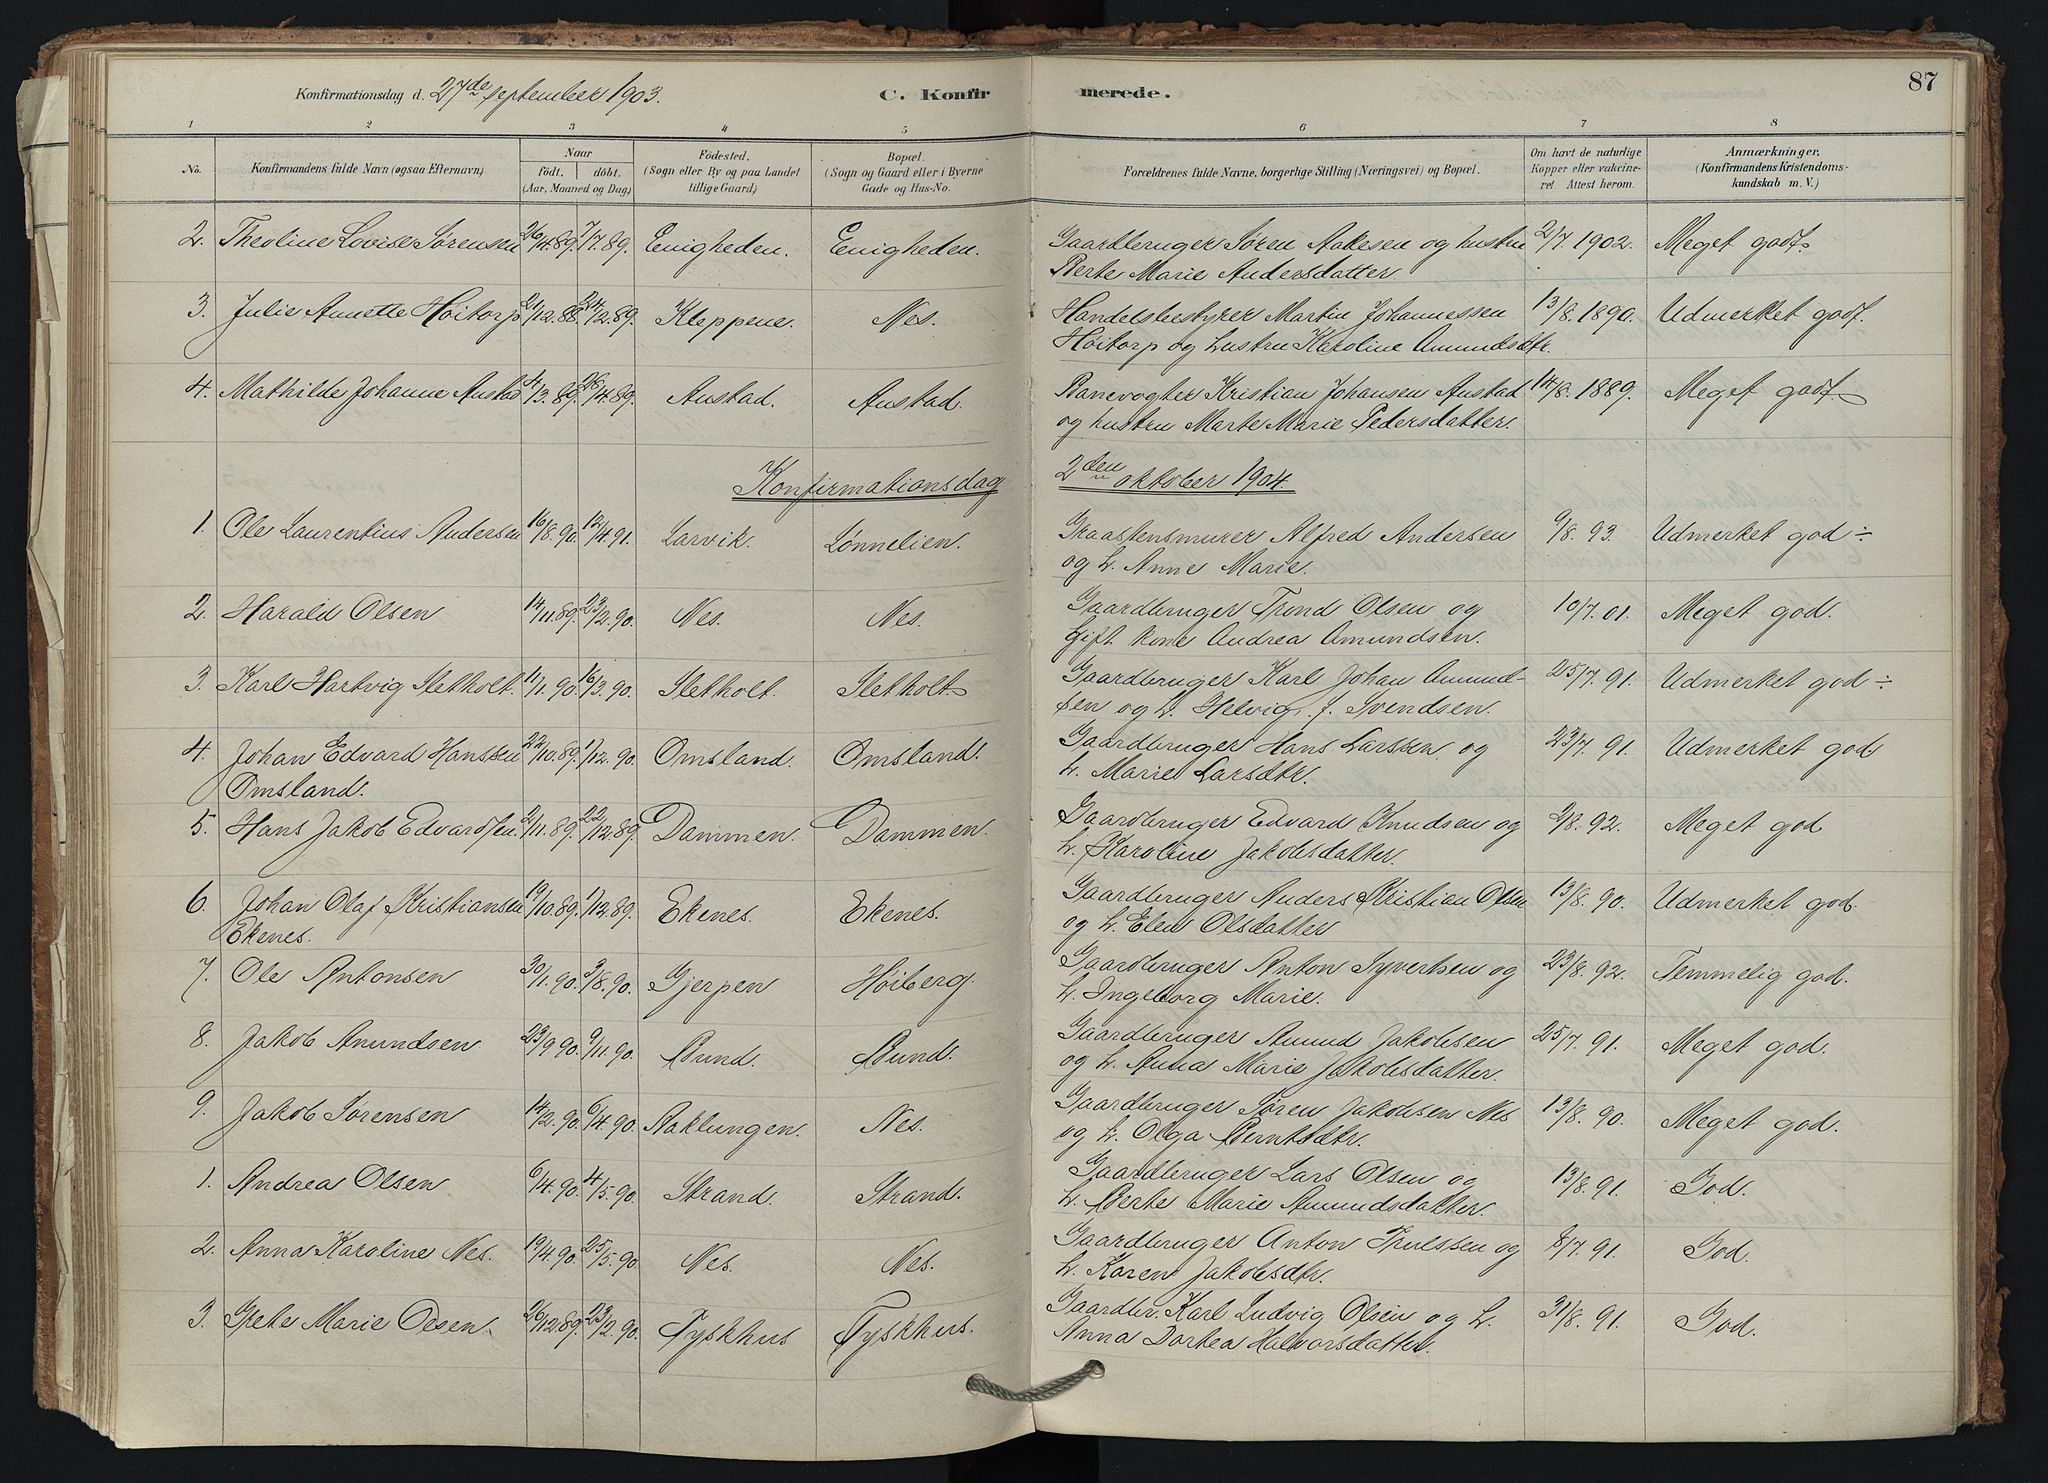 Konfirmationsdag d. 27de september 1903.
C. Konfirmerede.
87
1 2 3 4 5 6 7 8
No.
Konfirmandens fulde Navn (ogsaa Efternavn)
Naar
født. døbt.
(Aar, Maaned og Dag)
Fødested.
(Sogn eller By og paa Landet
tillige Gaard)
Bopæl.
(Sogn og Gaard eller i Byerne
Gade og Hus-No.
Forældrenes fulde Navne, borgerlige Stilling (Næringsvei) og Bopæl.
Om havt de naturlige
Kopper eller vakcine-
ret Attest herom.
Anmærkninger.
(Konfirmandens Kristendoms-
kundskab m. V.)
2. Theoline Lovise Sørensen 26/4.89. 7/7.89. Enigheden. Enigheden. Gaardbruger Søren Aakesen og hustru 2/7 1902. Meget godt.
Berte Marie Andersdatter.
3. Julie Annette Høitorp 21/12.88. 24/2.89. Kleppene. Nes. Handelsbestyrer Martin Johannessen 13/8.1890. Udmerket godt.
Høitorp og hustru Karoline Amundsdtr.
4. Mathilde Johanne Austad 4/3.89. 28/4.89. Austad. Austad. Banevogter Kristian Johansen Austad 14/8.1889. Meget godt
og hustru Marte Marie Pedersdatter.
Konfirmationsdag 2den oktober 1904.
1. Ole Laurentius Andersen 16/8.90. 12/4.91. Larvik. Lønnelien. Graastensmurer Alfred Andersen 9/8.93. Udmerket god ÷
og h. Anne Marie.
2. Harald Olsen 14/11.89. 23/2.90. Nes. Nes. Gaardbruger Trond Olsen og 10/7.01. Meget god.
Gift kone Andrea Amundsen.
3. Karl Hartvig Stetholt. 11/1.90. 16/3.90. Stetholt. Stetholt Gaardbruger Karl Johan Amund- 25/7.91. Udmerket god ÷
sen og h. Helvig f. Svendsen.
4. Johan Edvard Hanssen 22/10.89. 1/12.90. Omsland. Omsland. Gaardbruger Hans Larssen og 23/7.91. Udmerket god
Omsland. h. Marie Larsdtr.
5. Hans Jakob Edvardsen. 2/11.89. 22/12.89. Dammen. Dammen. Gaardbruger Edvard Knudsen og 2/8.92. Meget god
h. Karoline Jakobsdatter.
6. Johan Olaf Kristiansen 19/10.89. 1/12.89. Ekenes. Ekenes. Gaardbruger Anders Kristian Olsen 13/8.90. Udmerket god.
Ekenes. og h. Elen Olsdatter
7. Ole Antonsen 30/1.90. 3/8.90. Gjerpen Høiberg. Gaardbruger Anton Syvertsen og 23/8.92. Temmelig god.
h. Ingeborg Marie.
8. Jakob Amundsen 23/9 90. 9/11.90. Bund. Bund. Gaardbruger Amund Jakobsen 25/7.91. Meget god.
og h. Anna Marie Jakobsdatter.
9. Jakob Sørensen 14/2.90. 6/4.90. Aaklungen. Nes. Gaardbruger Søren Jakobsen Nes 13/8.90. Meget god.
og h. Olga Berntsdtr.
1. Andrea Olsen 6/4.90. 4/5.90. Strand. Strand. Gaardbruger Lars Olsen og 13/8.91. God.
h. Berte Marie Amundsdatter.
2. Anna Karoline Nes. 19/4.90. 25/5.90. Nes. Nes. Gaardbruger Anton Trulssen og 8/7.91. God.
h. Karen Jakobsdtr.
3. Grete Marie Olsen. 26/12.89. 23/2.90. Tyskhus Tyskhus. Gaardbr. Karl Ludvig Olsen og h. 31/8.91. God.
Anna Dortea Halvorsdatter.